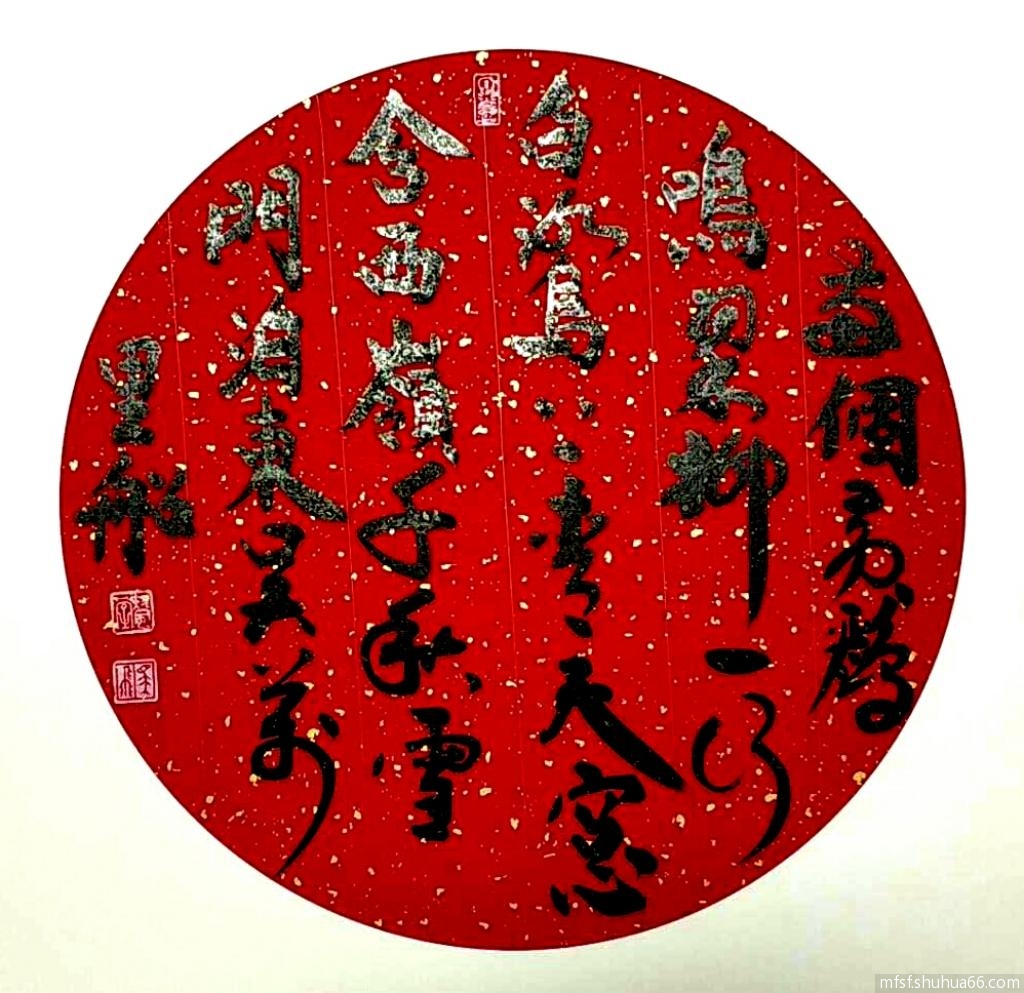 兩個黃鸝
鳴翠柳一行
白鷺上青天窓
含西嶺千秋雪
門泊東吳萬
里船
mfsf.shuhua66.com